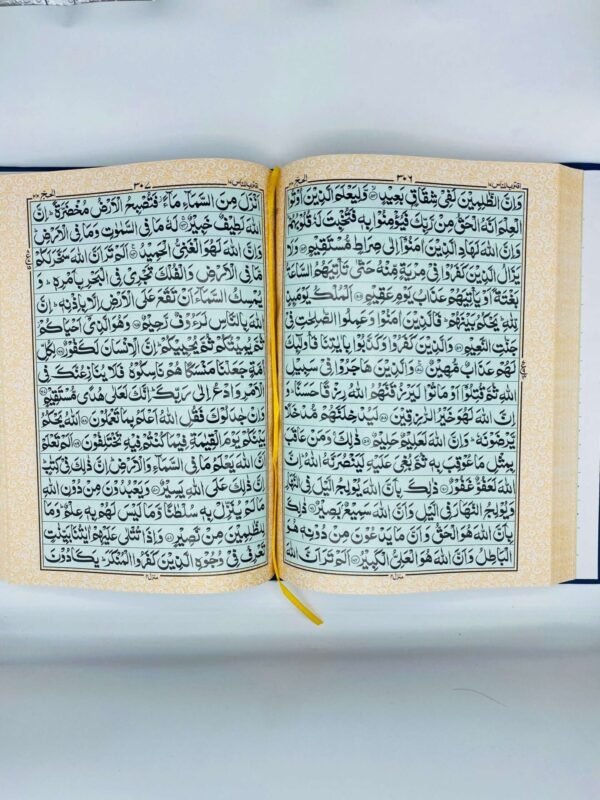 اقترب للناس ١٧
٣٠٦
الحج ٢٢
وَاِنَّ الظّٰلِمِیْنَ لَفِیْ شِقَاقٍۭ بَعِیْدٍ ﴿۵۳﴾ وَّلِیَعْلَمَ الَّذِیْنَ اُوْتُوا
الْعِلْمَ اَنَّهُ الْحَقُّ مِنْ رَّبِّكَ فَیُؤْمِنُوْا بِهٖ فَتُخْبِتَ لَهٗ قُلُوْبُهُمْ ؕ
وَاِنَّ اللّٰهَ لَهَادِ الَّذِیْنَ اٰمَنُوْۤا اِلٰی صِرَاطٍ مُّسْتَقِیْمٍ ﴿۵۴﴾ وَلَا
یَزَالُ الَّذِیْنَ كَفَرُوْا فِیْ مِرْیَةٍ مِّنْهُ حَتّٰی تَاْتِیَهُمُ السَّاعَةُ
بَغْتَةً اَوْ یَاْتِیَهُمْ عَذَابُ یَوْمٍ عَقِیْمٍ ﴿۵۵﴾ اَلْمُلْكُ یَوْمَىِٕذٍ
لِّلّٰهِ ؕ یَحْكُمُ بَیْنَهُمْ ؕ فَالَّذِیْنَ اٰمَنُوْا وَعَمِلُوا الصّٰلِحٰتِ فِیْ
جَنّٰتِ النَّعِیْمِ ﴿۵۶﴾ وَالَّذِیْنَ كَفَرُوْا وَكَذَّبُوْا بِاٰیٰتِنَا فَاُولٰٓىِٕكَ
لَهُمْ عَذَابٌ مُّهِیْنٌ ﴿۵۷﴾ وَالَّذِیْنَ هَاجَرُوْا فِیْ سَبِیْلِ
اللّٰهِ ثُمَّ قُتِلُوْۤا اَوْ مَاتُوْا لَیَرْزُقَنَّهُمُ اللّٰهُ رِزْقًا حَسَنًا ؕ وَ
اِنَّ اللّٰهَ لَهُوَ خَیْرُ الرّٰزِقِیْنَ ﴿۵۸﴾ لَیُدْخِلَنَّهُمْ مُّدْخَلًا
یَّرْضَوْنَهٗ ؕ وَاِنَّ اللّٰهَ لَعَلِیْمٌ حَلِیْمٌ ﴿۵۹﴾ ذٰلِكَ ۚ وَمَنْ عَاقَبَ
بِمِثْلِ مَا عُوْقِبَ بِهٖ ثُمَّ بُغِیَ عَلَیْهِ لَیَنْصُرَنَّهُ اللّٰهُ ؕ اِنَّ
اللّٰهَ لَعَفُوٌّ غَفُوْرٌ ﴿۶۰﴾ ذٰلِكَ بِاَنَّ اللّٰهَ یُوْلِجُ الَّیْلَ فِی النَّهَارِ
وَیُوْلِجُ النَّهَارَ فِی الَّیْلِ وَاَنَّ اللّٰهَ سَمِیْعٌۢ بَصِیْرٌ ﴿۶۱﴾ ذٰلِكَ
بِاَنَّ اللّٰهَ هُوَ الْحَقُّ وَاَنَّ مَا یَدْعُوْنَ مِنْ دُوْنِهٖ هُوَ
الْبَاطِلُ وَاَنَّ اللّٰهَ هُوَ الْعَلِیُّ الْكَبِیْرُ ﴿۶۲﴾ اَلَمْ تَرَ اَنَّ اللّٰهَ
منزل ٤
اقترب للناس ١٧
٣٠٧
الحج ٢٢
اَنْزَلَ مِنَ السَّمَآءِ مَآءً ؗ فَتُصْبِحُ الْاَرْضُ مُخْضَرَّةً ؕ اِنَّ
اللّٰهَ لَطِیْفٌ خَبِیْرٌ ﴿۶۳﴾ لَهٗ مَا فِی السَّمٰوٰتِ وَمَا فِی الْاَرْضِ ؕ
وَاِنَّ اللّٰهَ لَهُوَ الْغَنِیُّ الْحَمِیْدُ ﴿۶۴﴾ اَلَمْ تَرَ اَنَّ اللّٰهَ سَخَّرَ لَكُمْ
مَّا فِی الْاَرْضِ وَالْفُلْكَ تَجْرِیْ فِی الْبَحْرِ بِاَمْرِهٖ ؕ وَ
یُمْسِكُ السَّمَآءَ اَنْ تَقَعَ عَلَی الْاَرْضِ اِلَّا بِاِذْنِهٖ ؕ اِنَّ
اللّٰهَ بِالنَّاسِ لَرَءُوْفٌ رَّحِیْمٌ ﴿۶۵﴾ وَهُوَ الَّذِیْۤ اَحْیَاكُمْ ؗ
ثُمَّ یُمِیْتُكُمْ ثُمَّ یُحْیِیْكُمْ ؕ اِنَّ الْاِنْسَانَ لَكَفُوْرٌ ﴿۶۶﴾ لِكُلِّ
اُمَّةٍ جَعَلْنَا مَنْسَكًا هُمْ نَاسِكُوْهُ فَلَا یُنَازِعُنَّكَ فِی
الْاَمْرِ وَادْعُ اِلٰی رَبِّكَ ؕ اِنَّكَ لَعَلٰی هُدًی مُّسْتَقِیْمٍ ﴿۶۷﴾
وَاِنْ جٰدَلُوْكَ فَقُلِ اللّٰهُ اَعْلَمُ بِمَا تَعْمَلُوْنَ ﴿۶۸﴾ اَللّٰهُ یَحْكُمُ
بَیْنَكُمْ یَوْمَ الْقِیٰمَةِ فِیْمَا كُنْتُمْ فِیْهِ تَخْتَلِفُوْنَ ﴿۶۹﴾ اَلَمْ تَعْلَمْ
اَنَّ اللّٰهَ یَعْلَمُ مَا فِی السَّمَآءِ وَالْاَرْضِ ؕ اِنَّ ذٰلِكَ فِیْ كِتٰبٍ ؕ
اِنَّ ذٰلِكَ عَلَی اللّٰهِ یَسِیْرٌ ﴿۷۰﴾ وَیَعْبُدُوْنَ مِنْ دُوْنِ اللّٰهِ
مَا لَمْ یُنَزِّلْ بِهٖ سُلْطٰنًا وَّمَا لَیْسَ لَهُمْ بِهٖ عِلْمٌ ؕ وَمَا
لِلظّٰلِمِیْنَ مِنْ نَّصِیْرٍ ﴿۷۱﴾ وَاِذَا تُتْلٰی عَلَیْهِمْ اٰیٰتُنَا بَیِّنٰتٍ
تَعْرِفُ فِیْ وُجُوْهِ الَّذِیْنَ كَفَرُوا الْمُنْكَرَ ؕ یَكَادُوْنَ
منزل ٤